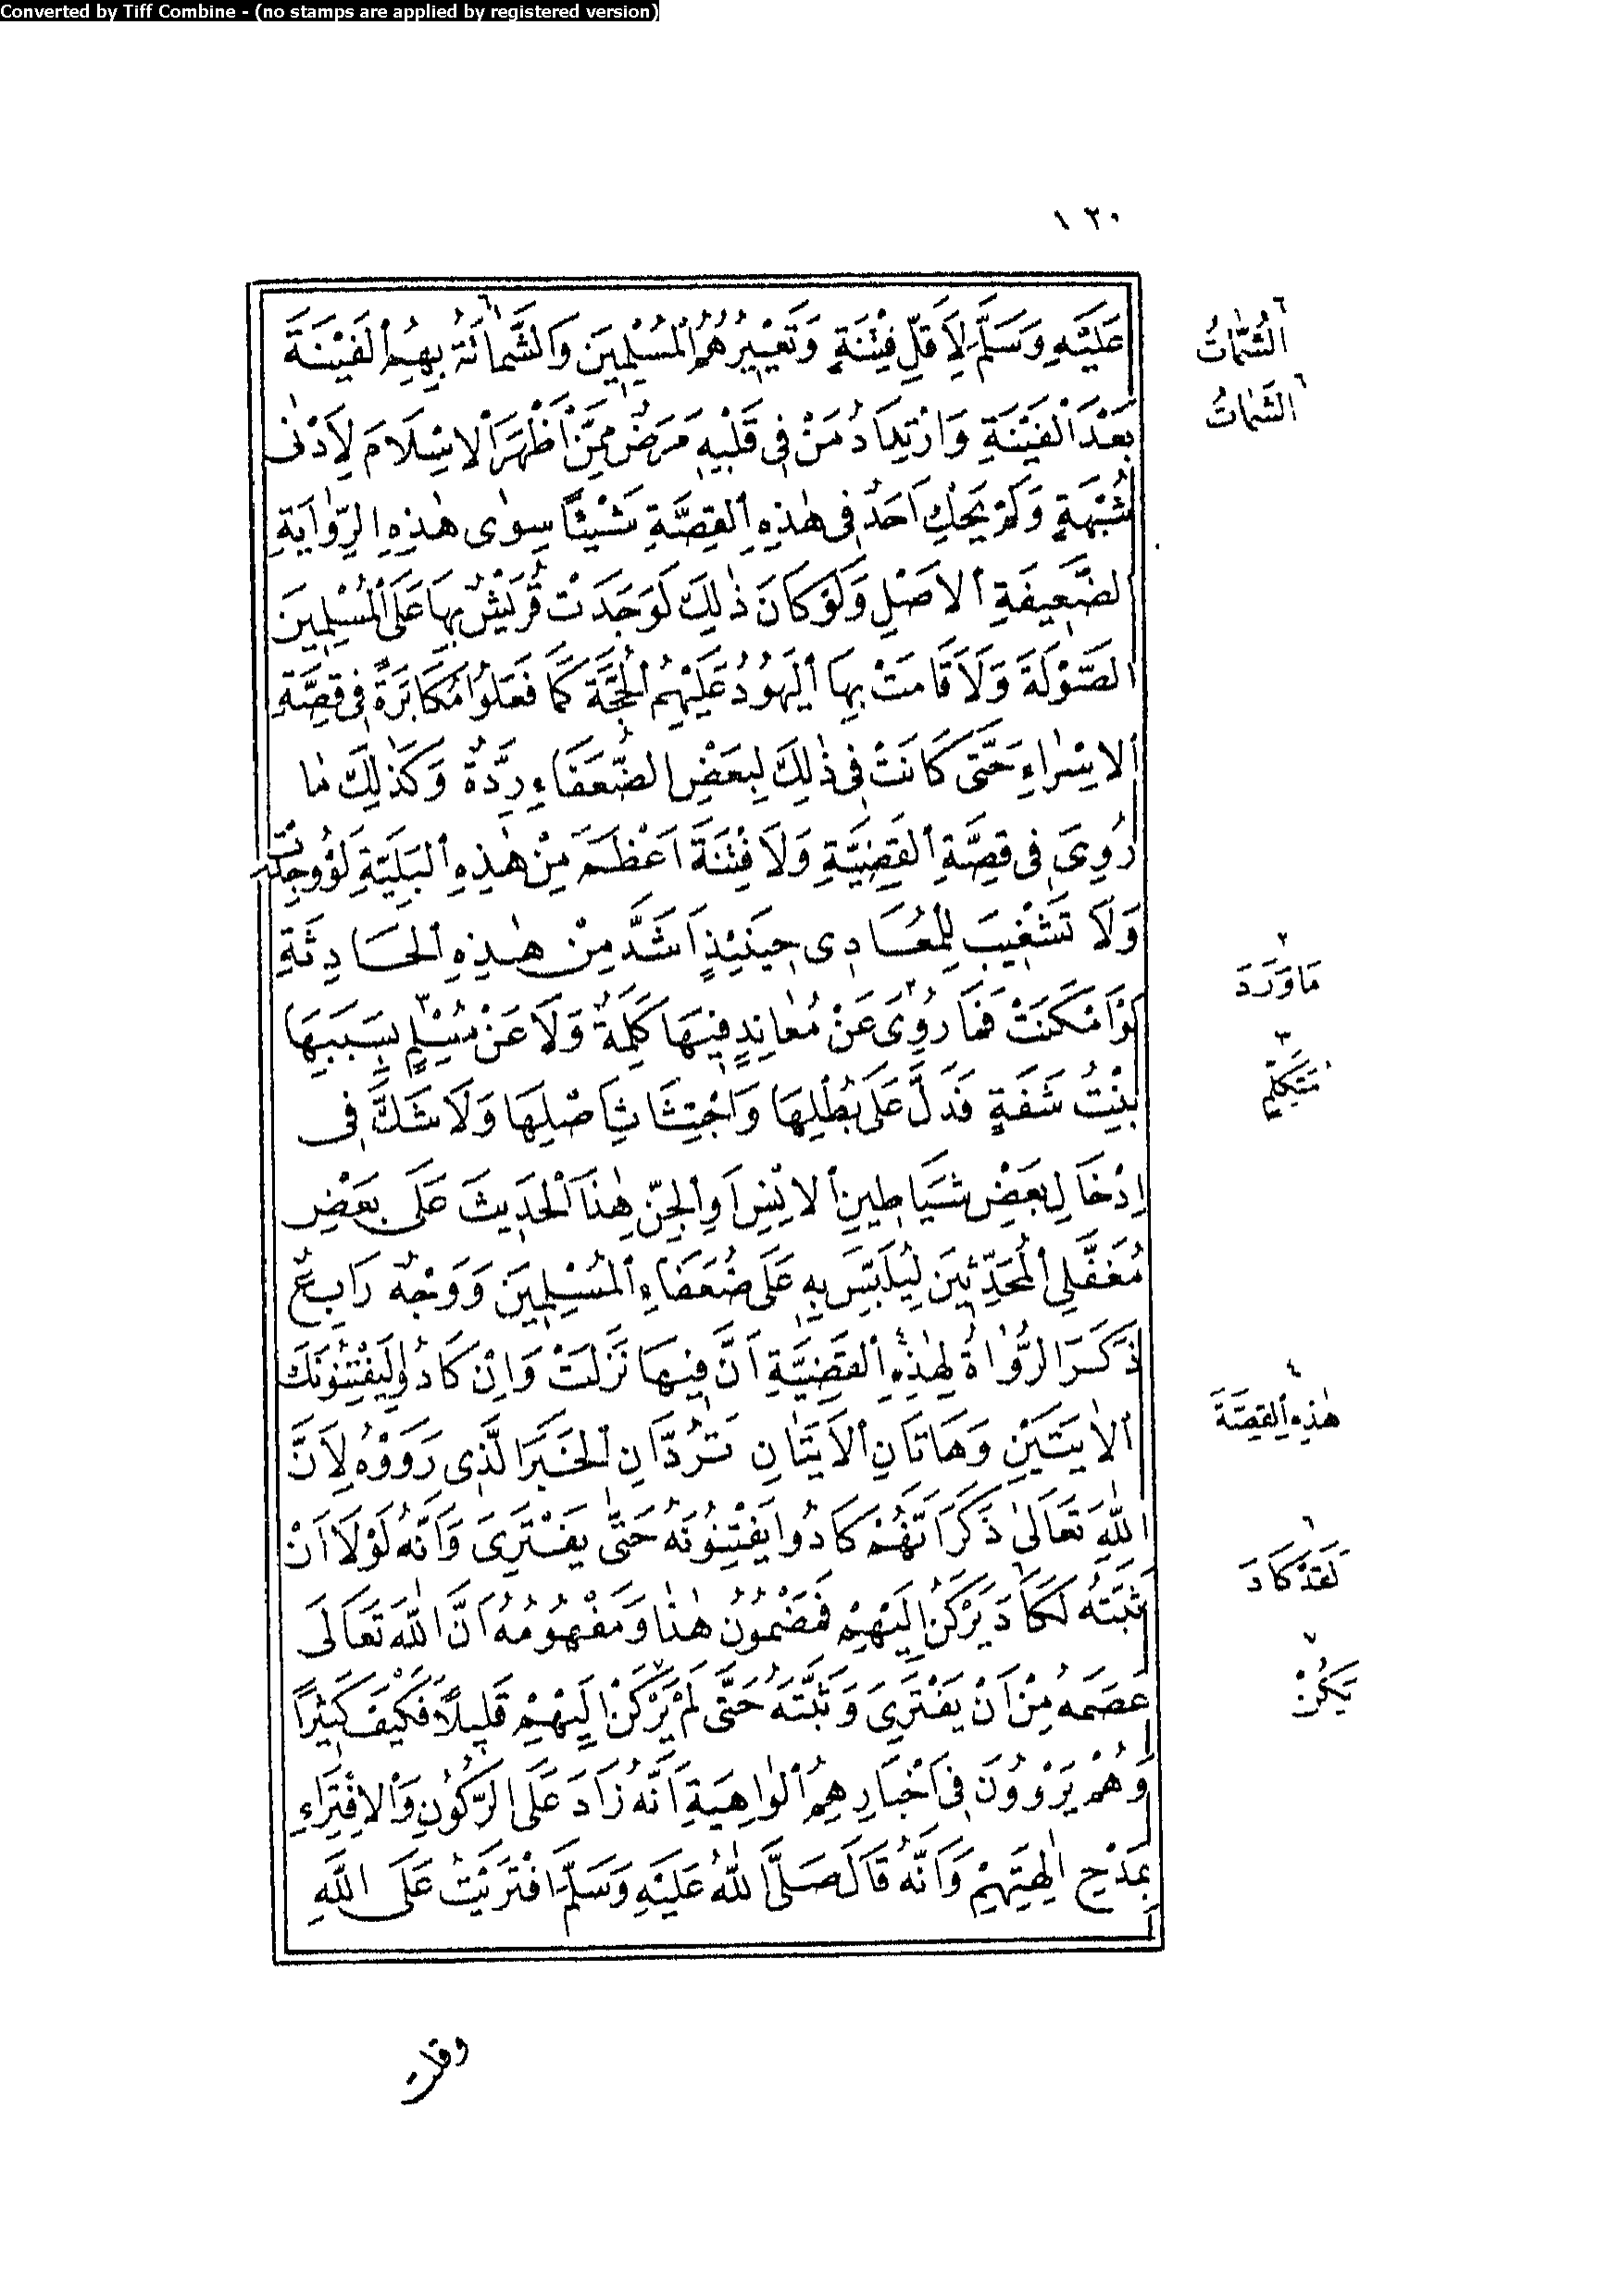 Converted by Tiff Combine - (no stamps are applied by registered version)
١٢٠
عَلَيْهِ وَسَلَّمَ لِأَقَلِّ فِتْنَةٍ وَتَعْيِيرُهُمُ الْمُسْلِمِينَ وَالشَّمَاتَةُ بِهِمُ الْفَيْنَةَ
بَعْدَ الْفَيْنَةِ وَارْتِدَادُ مَنْ فِى قَلْبِهِ مَرَضٌ مِمَّنْ أَظْهَرَ الْاِسْلَامَ لِأَدْنٰى
شُبْهَةٍ وَلَمْ يَحْكِ اَحَدٌ فِى هٰذِهِ الْقِصَّةِ شَيْئًا سِوٰى هٰذِهِ الرِّوَايَةِ
الضَّعِيفَةِ الْاَصْلِ وَلَوْ كَانَ ذٰلِكَ لَوَجَدَتْ قُرَيْشٌ بِهَا عَلَى الْمُسْلِمِينَ
الصَّوْلَةَ وَلَاَقَامَتْ بِهَا الْيَهُودُ عَلَيْهِمُ الْحُجَّةَ كَمَا فَعَلُوا مُكَابَرَةً فِى قِصَّةِ
الْاِسْرَاءِ حَتّٰى كَانَتْ فِى ذٰلِكَ لِبَعْضِ الضُّعَفَاءِ رِدَّةٌ وَكَذٰلِكَ مَا
رُوِىَ فِى قِصَّةِ الْقَضِيَّةِ وَلَا فِتْنَةَ اَعْظَمَ مِنْ هٰذِهِ الْبَلِيَّةِ لَوْ وُجِدَتْ
وَلَا تَشْغِيبَ لِلْمُعَادِى حِينَئِذٍ اَشَدَّ مِنْ هٰذِهِ الْحَادِثَةِ
لَوْ اَمْكَنَتْ فَمَا رُوِىَ٢ عَنْ مُعَانِدٍ فِيهَا كَلِمَةٌ وَلَا عَنْ مُسْلِمٍ٣ بِسَبَبِهَا
بِنْتُ شَفَةٍ فَدَلَّ عَلَى بُطْلِهَا وَاجْتِثَاثِ اَصْلِهَا وَلَا شَكَّ فِى
اِدْخَالِ بَعْضِ شَيَاطِينِ الْاِنْسِ اَوِ الْجِنِّ هٰذَا الْحَدِيثَ عَلَى بَعْضِ
مُغَفَّلِى الْمُحَدِّثِينَ لِيُلَبِّسَ بِهِ عَلَى ضُعَفَاءِ الْمُسْلِمِينَ وَوَجْهٌ رَابِعٌ
ذَكَرَ الرُّوَاةُ لِهٰذِهِ٤ الْقَضِيَّةِ اَنَّ فِيهَا نَزَلَتْ وَاِنْ كَادُوا لَيَفْتِنُونَكَ
الْاٰيَتَيْنِ وَهَاتَانِ الْاٰيَتَانِ تَرُدَّانِ الْخَبَرَ الَّذِى رَوَوْهُ لِاَنَّ
اللّٰهَ تَعَالٰى ذَكَرَ اَنَّهُمْ كَادُوا يَفْتِنُونَهُ حَتّٰى يَفْتَرِىَ وَاَنَّهُ لَوْلَا اَنْ
ثَبَّتَهُ لَكَادَ٦ يَرْكَنُ اِلَيْهِمْ فَمَضْمُونُ هٰذَا وَمَفْهُومُهُ اَنَّ اللّٰهَ تَعَالَى
عَصَمَهُ مِنْ اَنْ يَفْتَرِىَ وَثَبَّتَهُ حَتّٰى لَمْ يَرْكَنْ٧ اِلَيْهِمْ قَلِيلًا فَكَيْفَ كَثِيرًا
وَهُمْ يَرْوُونَ فِى اَخْبَارِهِمُ الْوَاهِيَةِ اَنَّهُ زَادَ عَلَى الرُّكُونِ وَالْاِفْتِرَاءِ
بِمَدْحِ اٰلِهَتِهِمْ وَاَنَّهُ قَالَ صَلَّى اللّٰهُ عَلَيْهِ وَسَلَّمَ افْتَرَيْتُ عَلَى اللّٰهِ
٦
الشُّمَّاتُ
٦
الشَّمَاتُ
٢
مَاوَرَدَ
٣
مُتَكَلِّمٍ
٤
هٰذِهِ الْقِصَّةَ
٦
لَقَدْ كَادَ
٧
يَكُنْ
وقلت